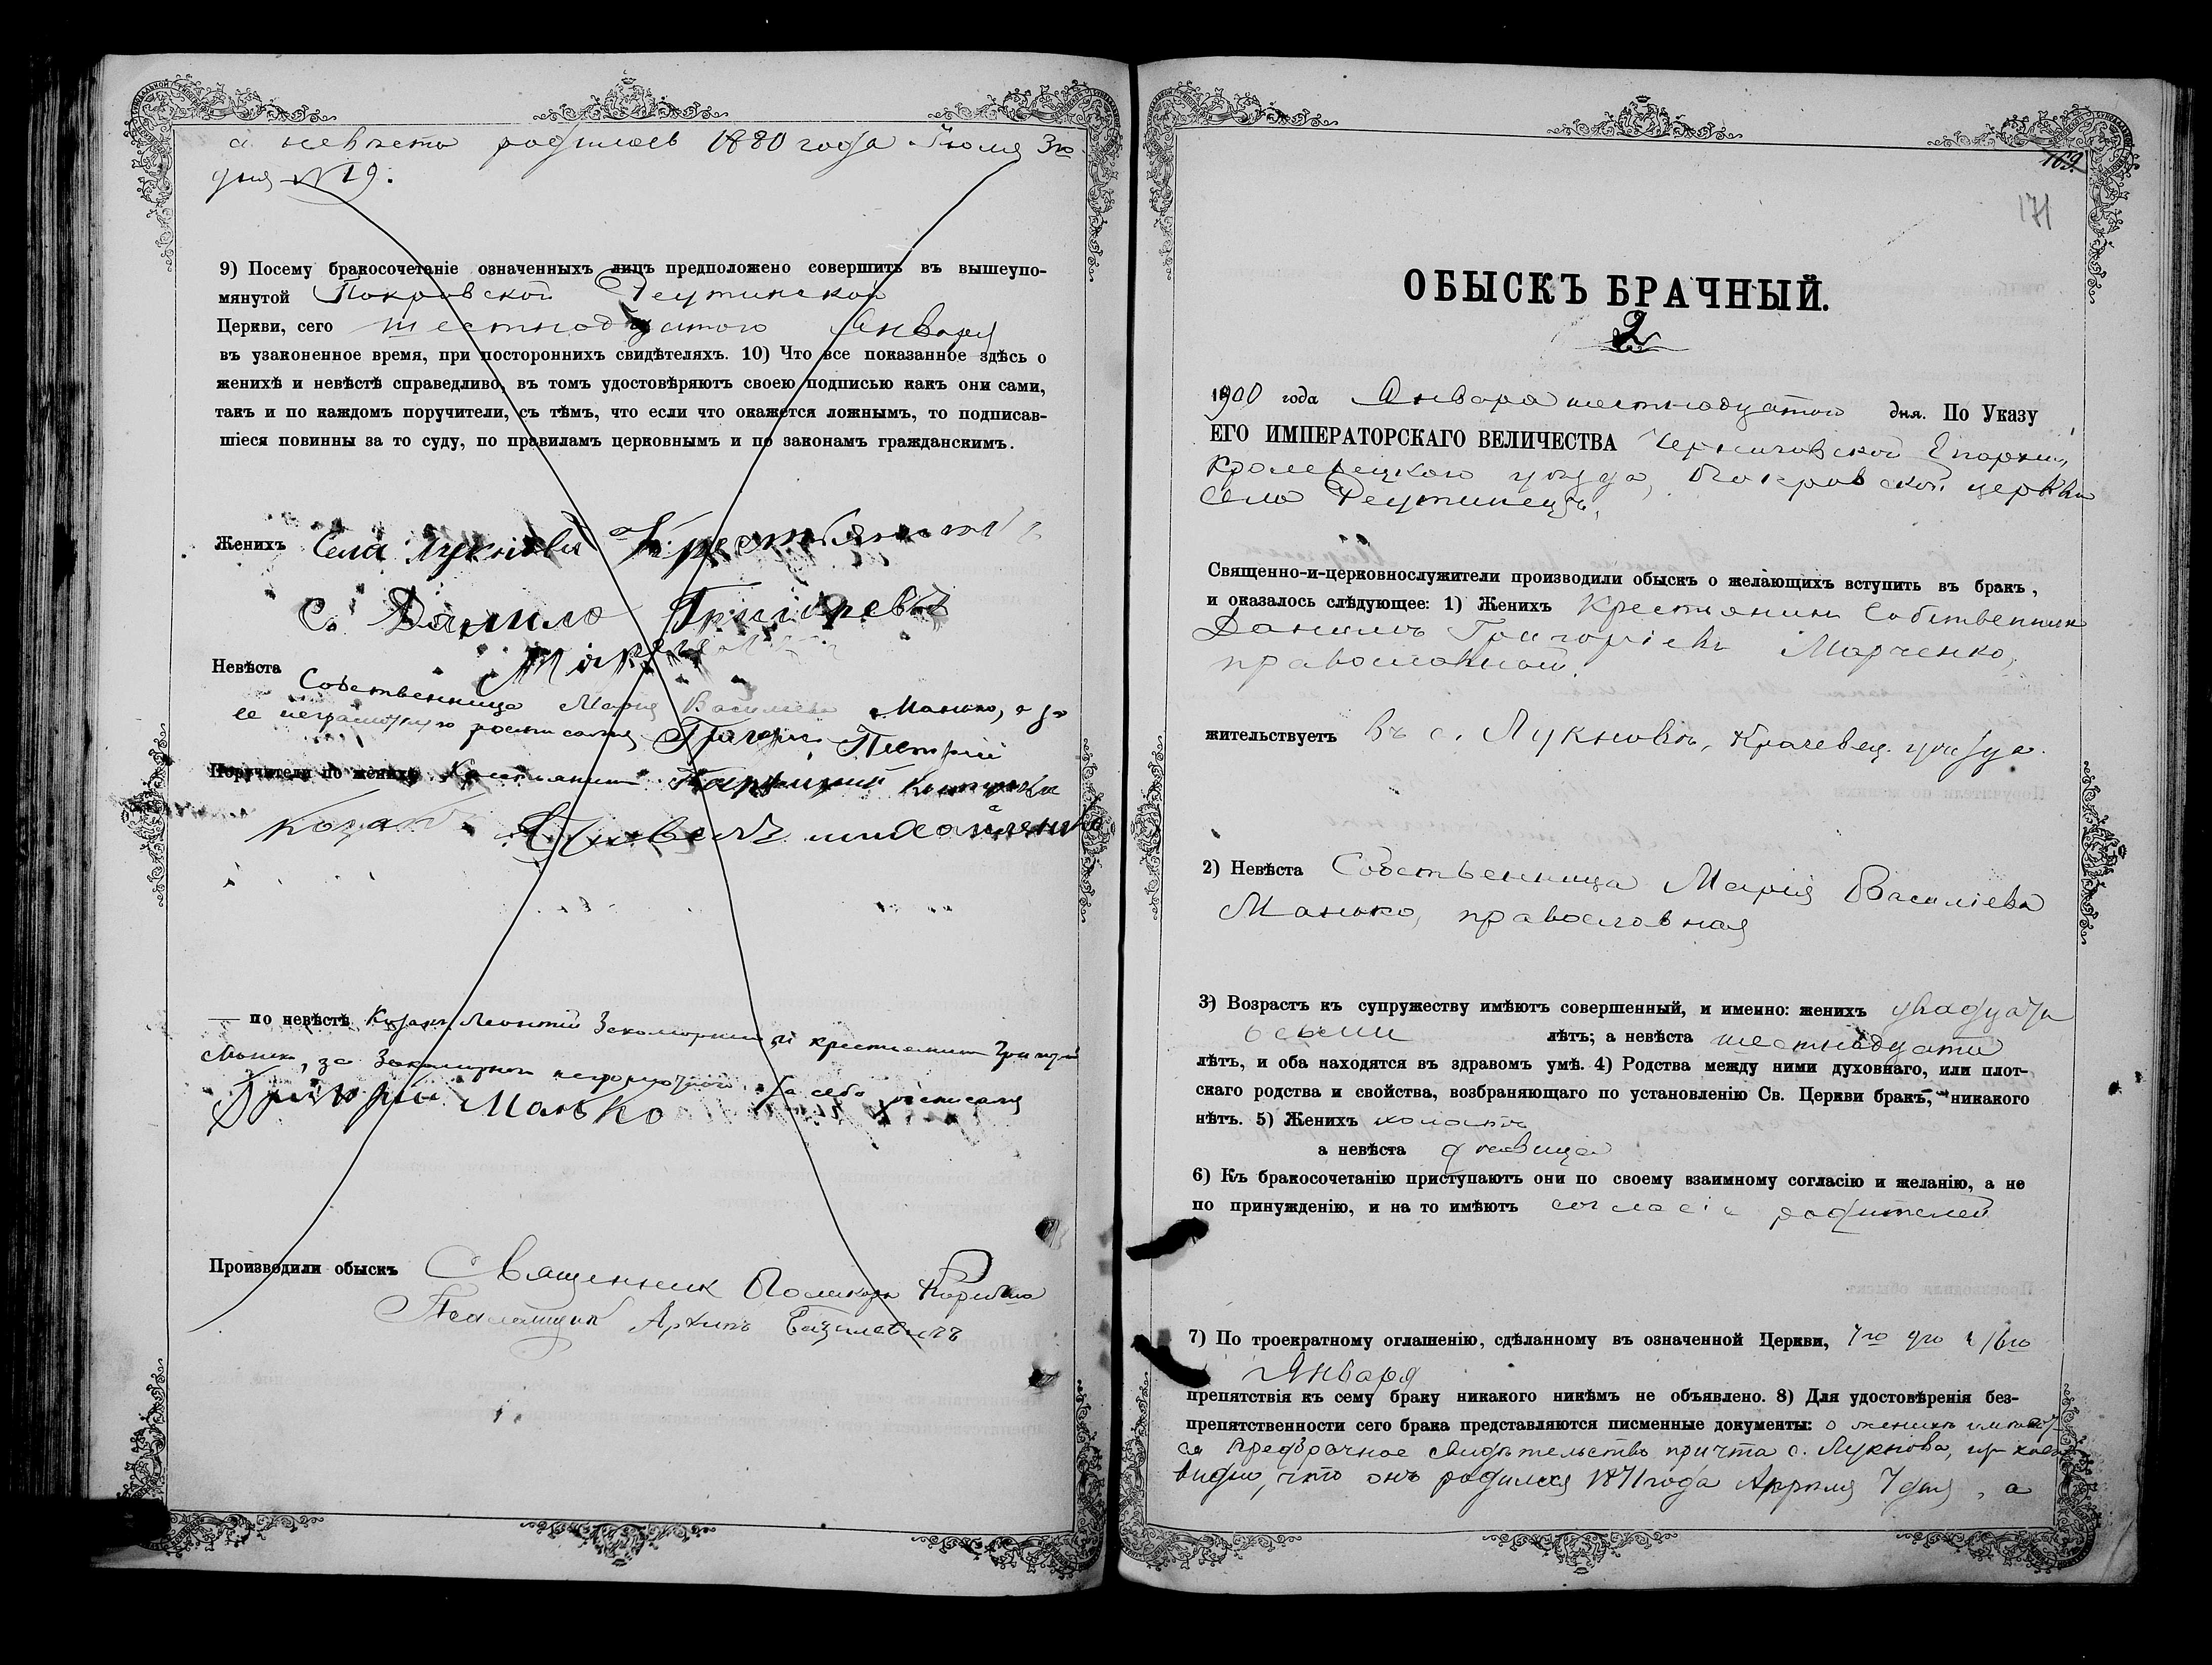 а невѣста родилась 1880 года Іюля 3го
дня № 19.
9) Посему бракосочетаніе означенныхъ лицъ предположено совершить въ вышеупо-
мянутой Покровской Реутинской
Церкви, сего шестнадцатого Января
въ узаконенное время, при постороннихъ свидѣтеляхъ. 10) Что все показанное здѣсь о
женихѣ и невѣстѣ справедливо, въ томъ удостовѣряютъ своею подписью какъ они сами,
такъ и по каждомъ поручители, съ тѣмъ, что если что окажется ложнымъ, то подписав-
шіеся повинны за то суду, по правиламъ церковнымъ и по законамъ гражданскимъ.
Женихъ Села
с. Данило Григорьевъ
Невѣста
Собственница Марія Василіева Манько, а за
ее неграмотную росписался Григорій
Поручители по женихѣ Крестьянинъ
Козакъ
— по невѣстѣ Козакъ Леонтій и крестьянинъ Григорій
Манько, за неграмотного и за себя росписался
Григорій Манько
Производили обыскъ Священникъ Поликарп
Псаломщикъ Архипъ Базилевичъ
169
171
ОБЫСКЪ БРАЧНЫЙ.
2
1900 года Января шестнадцатого дня. По Указу
ЕГО ИМПЕРАТОРСКАГО ВЕЛИЧЕСТВА Черниговской Епархіи,
Кролевецкого уѣзда, Покровской церкви
села Реутинецъ,
Священно-и-церковнослужители производили обыскъ о желающихъ вступить въ бракъ,
и оказалось слѣдующее: 1) Женихъ Крестьянинъ Собственник
Данилъ Григоріевъ Марченко,
православный.
жительствуетъ въ с. Лукновѣ, Кролевец. уѣзда.
2) Невѣста Собственница Марія Василіева
Манько, православная
3) Возрастъ къ супружеству имѣютъ совершенный, и именно: женихъ двадцать
восьми лѣтъ; а невѣста шестнадцати
лѣтъ, и оба находятся въ здравомъ умѣ. 4) Родства между ними духовнаго, или плот-
скаго родства и свойства, возбраняющаго по установленію Св. Церкви бракъ, никакого
нѣтъ. 5) Женихъ холостъ
а невѣста дѣвица
6) Къ бракосочетанію приступаютъ они по своему взаимному согласію и желанію, а не
по принужденію, и на то имѣютъ согласіе родителей
7) По троекратному оглашенію, сдѣланному въ означенной Церкви, 7го 9го и 16го
Января
препятствія къ сему браку никакого никѣмъ не объявлено. 8) Для удостовѣренія без-
препятственности сего брака представляются писменные документы: о женихѣ имѣет-
ся предбрачное свидѣтельство причта с. Лукнова, изъ коего
видно, что онъ родился 1871 года Апрѣля 7 дня, а